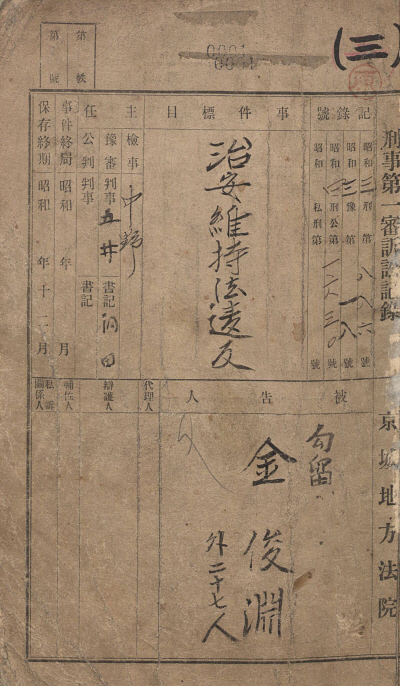 (三)
刑事第一審訴訟記錄
京城地方法院
記錄號
昭和三刑第八八六號
昭和三豫第一八號
昭和四刑公第號
昭和 私刑第 號
事件標目
治安維持法違反
主任
檢事 中野
豫審判事 五井
公判判事
書記
書記
事件終局 昭和 年 月
保存終期 昭和 年 十二月
第 帙
第 號
被告人
勾留
金俊淵
外二十七人
代理人
辯護人
輔佐人
私訴關係人